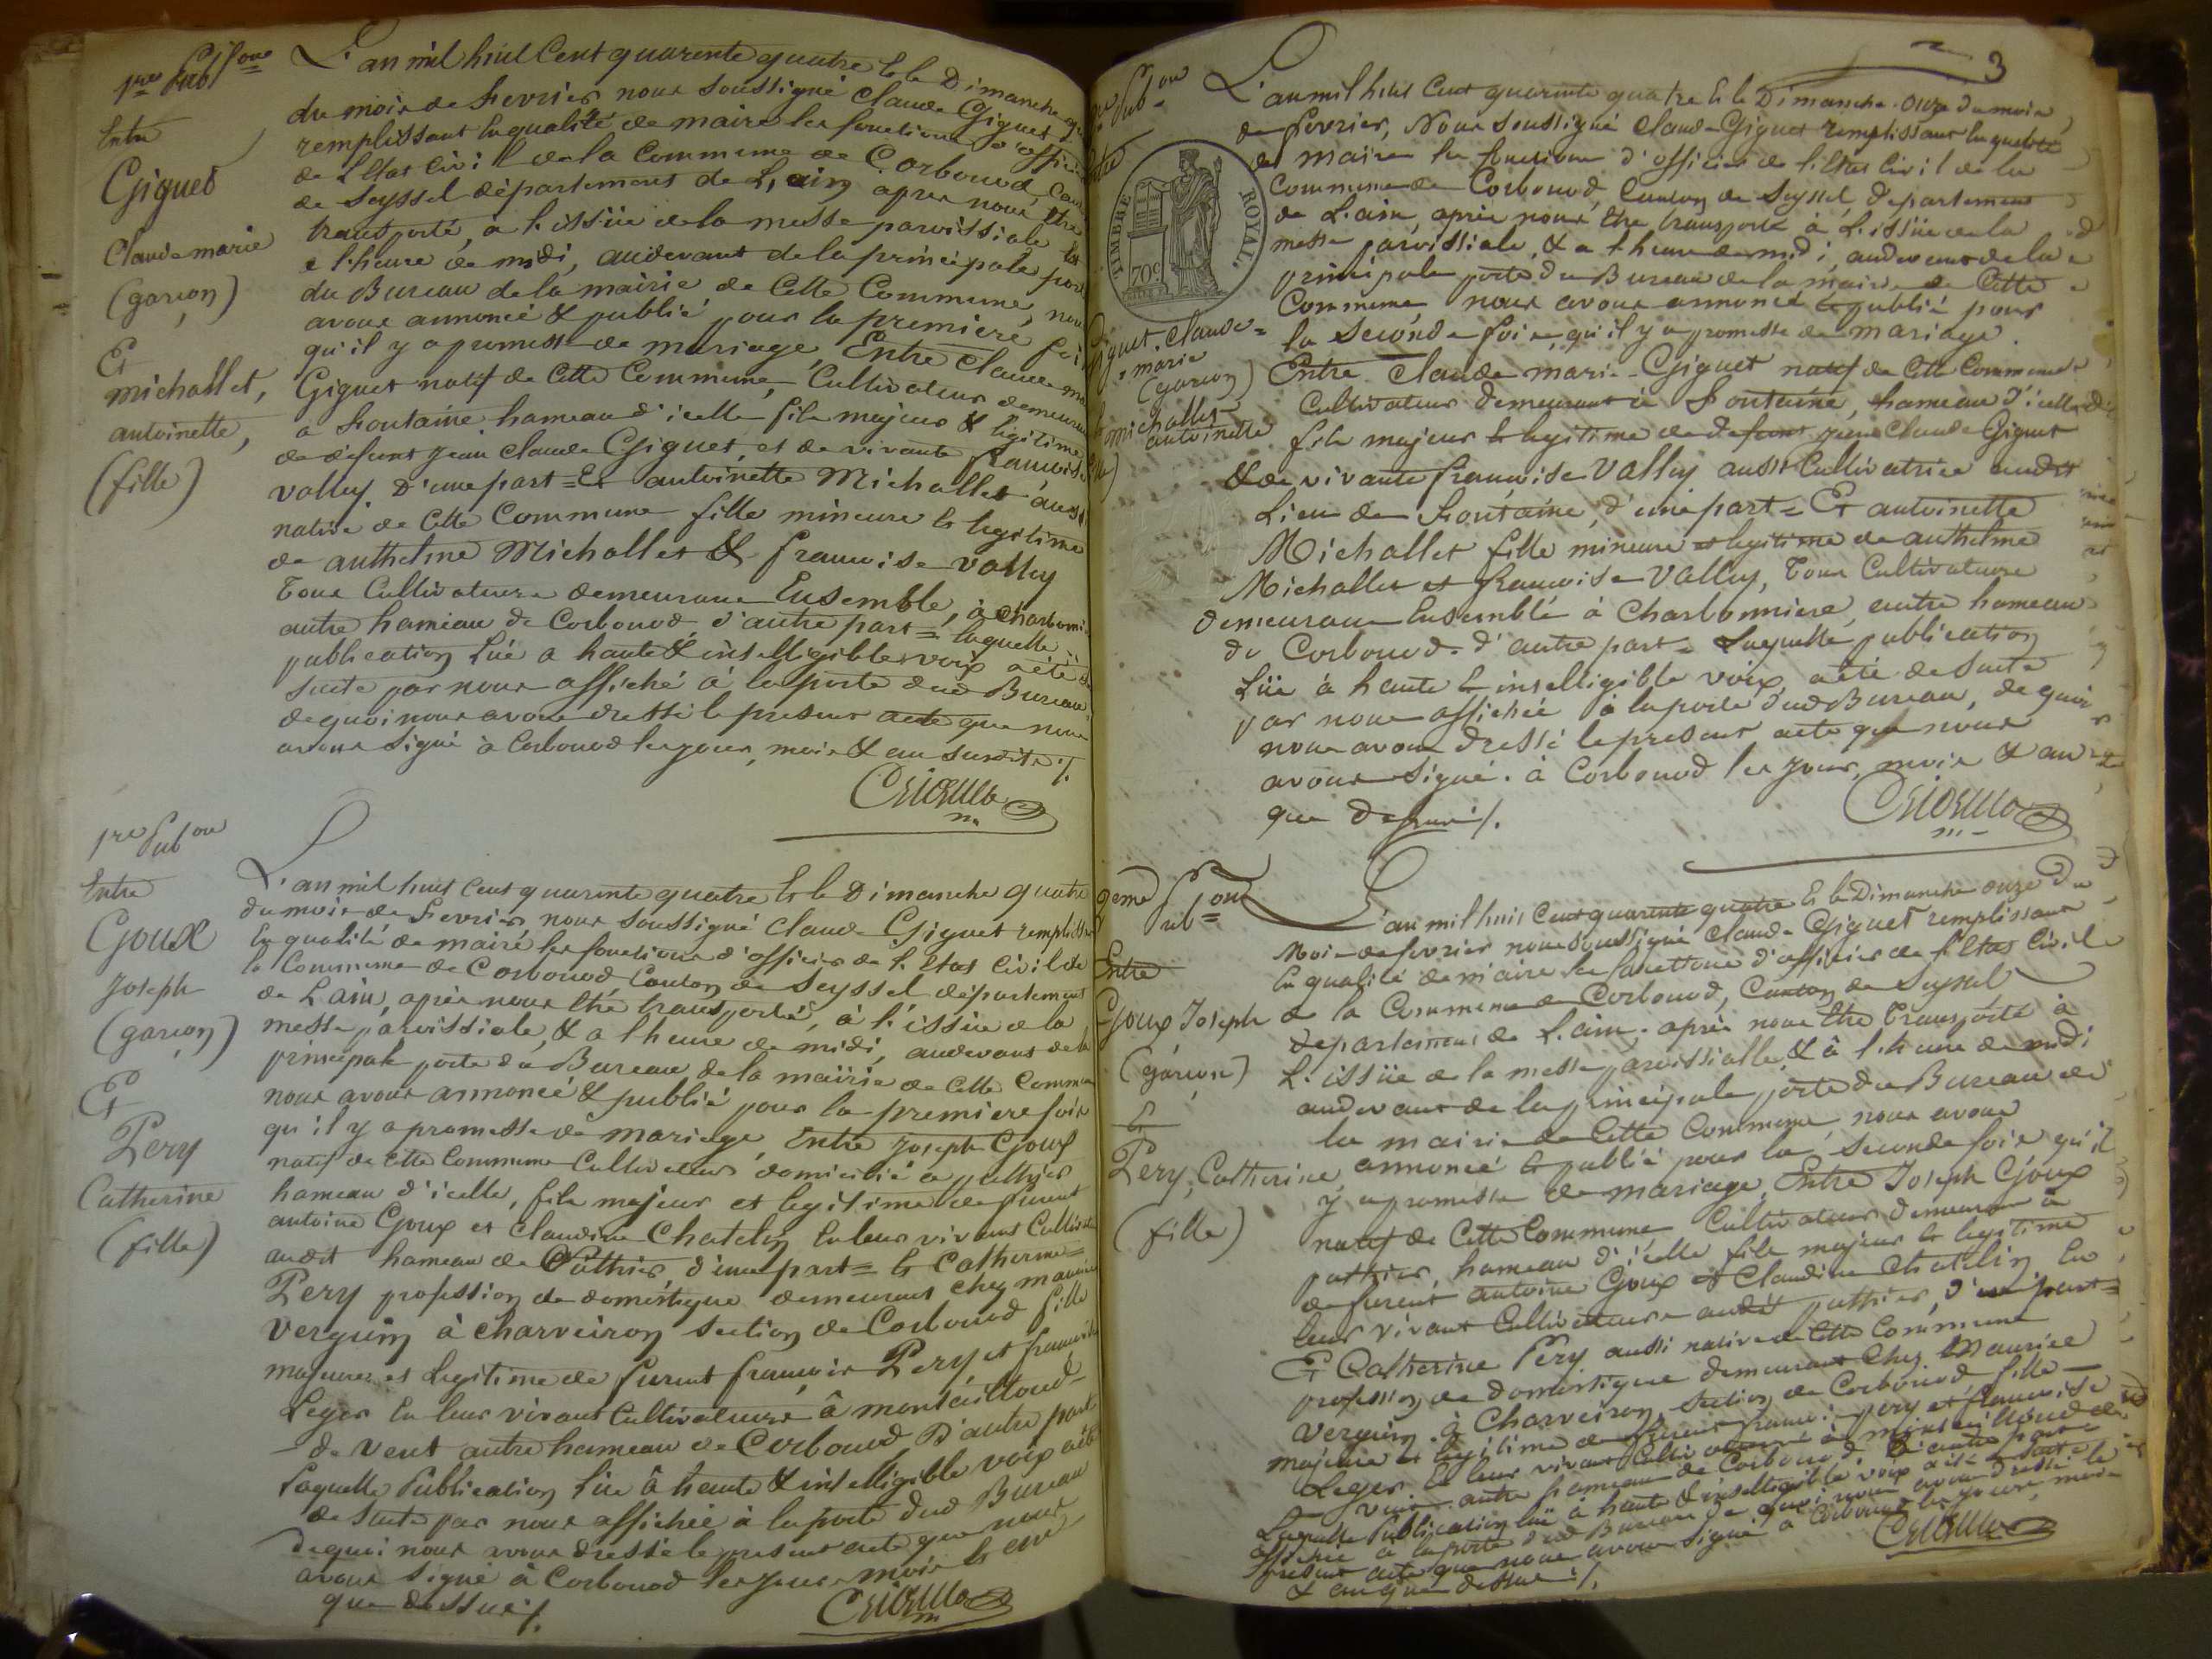 1re Pub^on
Entre
Giguet
Claude marie
(garçon)
Et
michallet,
antoinette,
(fille)
L'an mil huit Cent quarente quatre & le Dimanche
du mois de fevrier nous soussigné Claude Giguet
remplissant la qualité de maire les fonctions d'officier
de L'Etat Civil de la Commune de Corbonod, Can
de Seyssel département de L'ain après nous être
transporté, a l'issüe de la messe paroissiale et
a l'heure de midi, audevant de la principale porte
du Bureau de la mairie de Cette Commune, nous
avons annoncé & publié pour la premiere fois
qu'il y a promesse de mariage, Entre Claude ma
Giguet natif de Cette Commune, Cultivateur demeurant
a fontaine hameau d'icelle fils majeur & légitime
de défunt jean Claude Giguet, et de vivante françoise
valley D'une part = Et antoinette Michallet aussi
native de Cette Commune fille mineure & legitime
de authelme Michallet & françoise valley
Tous Cultivateurs demeurans Ensemble, à Charbonni
autre hameau de Corbonod d'autre part = laquelle
publication Lüe a haute & intelligible voix a été de
suite par nous affiché à la porte dud Bureau
de quoi nous avons dressé le present acte que nous
avons signé à Corbonod les jour, mois & an susdits ./.
1re Pub^on
Entre
Goux
Joseph
(garçon)
Et
Pery
Catherine
(fille)
L'an mil huit Cent quarente quatre & le Dimanche quatre
du mois de fevrier nous soussigné Claude Giguet rempliss
la qualité de maire les fonctions d'officier de l'Etat Civil de
la Commune de Corbonod, Canton de Seyssel, département
de L'ain, après nous être transporté, à l'issüe de la
messe paroissiale, & a l'heure de midi, audevant de la
principale porte du Bureau de la mairie de Cette Commune
nous avons annoncé & publié pour la premiere fois
qu'il y a promesse de mariage, Entre Joseph Goux
natif de Cette Commune Cultivateur domicilié a puthier
hameau d'icelle, fils majeur et legitime de furent
antoine Goux et Claudine Chatelin En leur vivans Cultivat
audit hameau de Puthier, d'une part = & Catherine =
Pery profession de domestique demeurant chez maurice
verguin à Charveiron Section de Corbonod fille
majeure et Legitime de furent françois Pery et françoise
Leger En leur vivant Cultivateurs à montaillioud
de vent autre hameau de Corbonod, D'autre part
Laquelle Publication Lüe à haute & intelligible voix a été
de suite par nous affichée à la porte dud Bureau
de quoi nous avons dressé le present acte que nous
avons signé à Corbonod les jour, mois & an
que dessus ./.
3
TIMBRE ROYAL.
70c
Giguet, Claude =
= marie
(garçon)
michallet
antoinette
L'an mil huit Cent quarente quatre & le Dimanche Onze du mois
de fevrier, Nous soussigné Claude Giguet remplissant la qualité
de maire les fonctions d'officier de l'Etat Civil de la
Commune de Corbonod, Canton de Seyssel, departement
de L'ain, après nous être transporté à L'issüe de la
messe paroissiale, & a l'heure de midi, audevant de la
principale porte du Bureau de la mairie de Cette
Commune nous avons annoncé & publié pour
la seconde fois, qu'il y a promesse de mariage.
Entre Claude marie Giguet natif de Cette Commune
Cultivateur demeurant à fontaine, hameau d'icelle
fils majeur & legitime de defunt jean Claude Giguet
& de vivante françoise Valley aussi Cultivatrice audit
Lieu de fontaine, d'une part = Et antoinette
Michallet fille mineure et legitime de authelme
Michallet et françoise Valley, Tous Cultivateurs
demeurans Ensemble à Charbonniere, autre hameau
de Corbonod. d'autre part = Laquelle publication
Lüe à haute & intelligible voix, a été de suite
par nous affichée à la porte dud Bureau, de quoi
nous avons dressé le present acte que nous
avons signé. à Corbonod les jour, mois & an
que dessus ./.
2eme Pub^on
Entre
Goux, Joseph
(garçon)
&
Pery, Catherine
(fille)
L'an mil huit Cent quarente quatre & le Dimanche onze du
Mois de fevrier nous soussigné Claude Giguet remplissant
la qualité de maire les fonctions d'officier de l'Etat Civil
de la Commune de Corbonod, Canton de Seyssel
departement de L'ain, après nous être transporté à
L'issüe de la messe paroissialle, & à l'heure de midi
audevant de la principale porte du Bureau de
la mairie de Cette Commune, nous avons
annoncé & publié pour la seconde fois qu'il
y a promesse de mariage, Entre Joseph Goux
natif de Cette Commune, Cultivateur demeurant à
puthier, hameau d'icelle fils majeur & legitime
de furent antoine Goux et Claudine Chatelin En
leur vivant Cultivateurs audit puthier, d'une part =
Et Catherine Pery aussi native de Cette Commune
profession de domestique demeurant chez Maurice
Verguin à Charveiron, Section de Corbonod fille
majeure & legitime de furent françois pery et françoise
Leger En leur vivant Cultivateurs à montaillioud de
vent autre hameau de Corbonod. D'autre part =
Laquelle Publication lüe à haute & intelligible voix a été de suite
affichée à la porte dud Bureau de quoi nous avons dressé le
present acte que nous avons signé à Corbonod les jour, mois
& an que dessus ./.